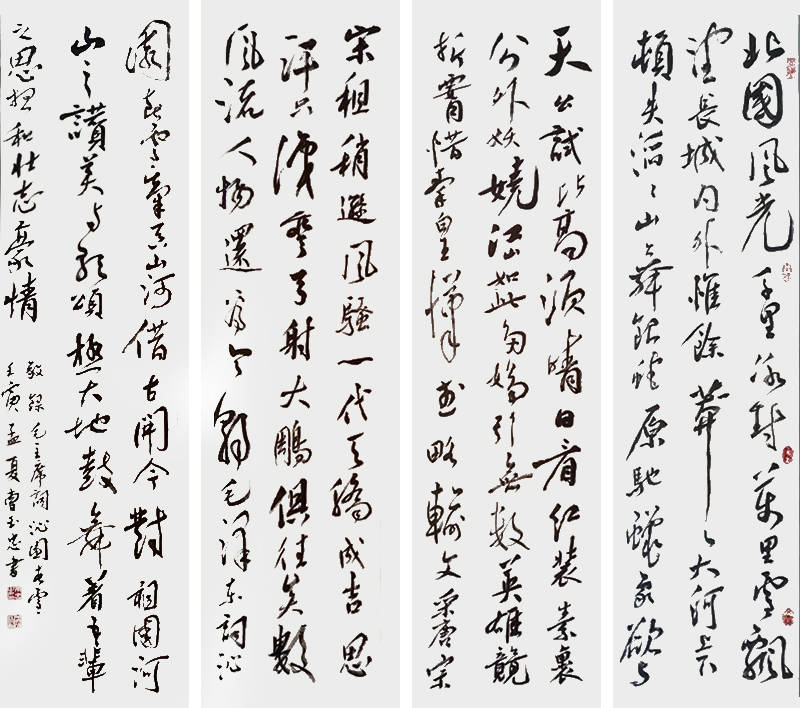 北國風光千里冰封萬里雪飄
望長城内外惟餘莽〻大河上下
頓失滔〻山舞銀蛇原馳蠟象欲与
天公試比高須晴日看红装素裹
分外妖嬈江山如此多嬌引無数英雄競
折腰惜秦皇漢武略輸文采唐宋
宗祖稍遜風騷一代天驕成吉思
汗只識彎弓射大鵰俱往矣數
風流人物還看今朝毛澤東詞沁
園春雪氣吞山河借古開今對祖國河
山之讚美与歌頌極大地鼓舞着吾輩
之思想和壯志豪情
敬錄毛主席詞沁園春雪
壬寅孟夏曹玉忠書